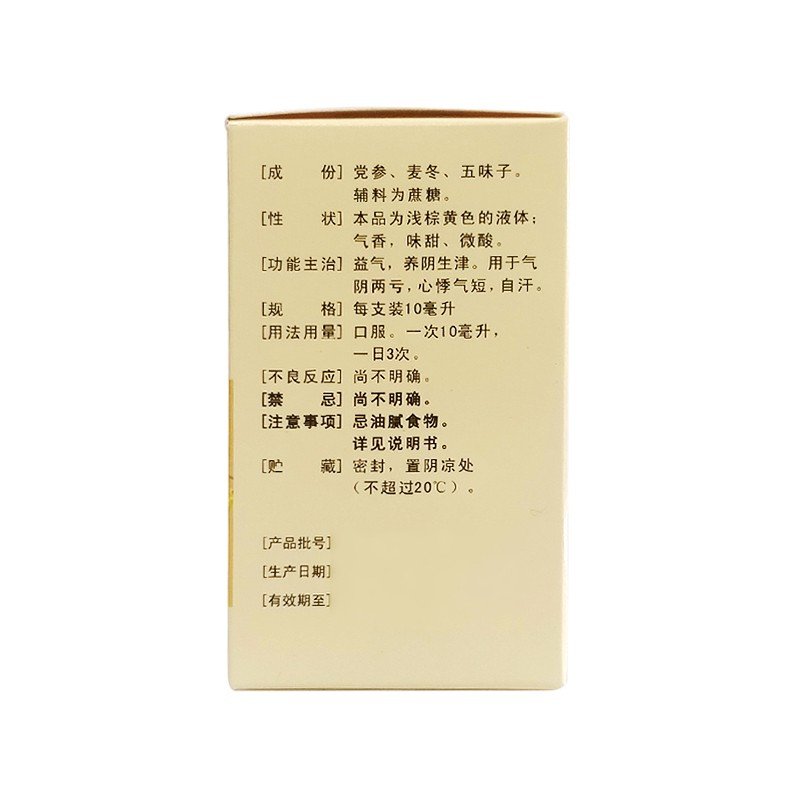 [成　份] 党参、麦冬、五味子。
辅料为蔗糖。
[性　状] 本品为浅棕黄色的液体；
气香，味甜、微酸。
[功能主治] 益气，养阴生津。用于气
阴两亏，心悸气短，自汗。
[规　格] 每支装10毫升
[用法用量] 口服。一次10毫升，
一日3次。
[不良反应] 尚不明确。
[禁　忌] 尚不明确。
[注意事项] 忌油腻食物。
详见说明书。
[贮　藏] 密封，置阴凉处
（不超过20℃）。
[产品批号]
[生产日期]
[有效期至]